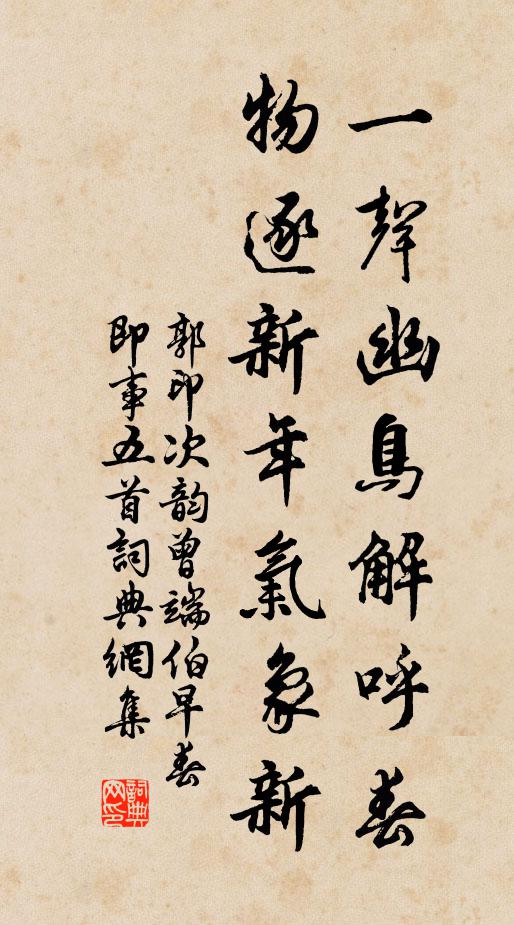 一聲幽鳥解呼春
物逐新年氣象新
郭印次韵曾端伯早春
即事五首詞典網集
詞典网印